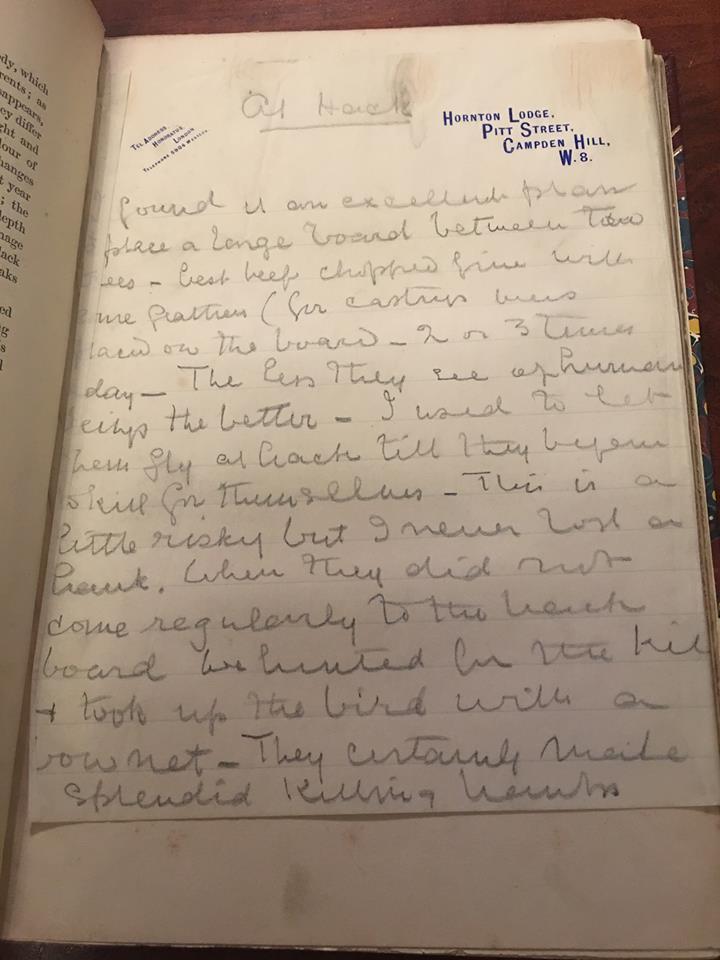 dy, which
rents; as
sappears,
ey differ
ght and
lour of
hanges
t year
; the
depth
mage
lack
eaks
ed
ng
s
d
At Hack
TEL ADDRESS,
HONORATUS,
LONDON
TELEPHONE 5904 WESTERN.
HORNTON LODGE,
PITT STREET,
CAMPDEN HILL,
W. 8.
found it an excellent plan
place a large board between two
rees - best beef chopped fine with
ome feathers (for castings was
laced on the board - 2 or 3 times
day - The less they see of human
eings the better - I used to let
hem fly at hack till they began
o kill for themselves - This is a
little risky but I never lost a
hawk. When they did not
come regularly to the hack
board we hunted for the kill
+ took up the bird with a
bow net - They certainly made
splendid killing hawks